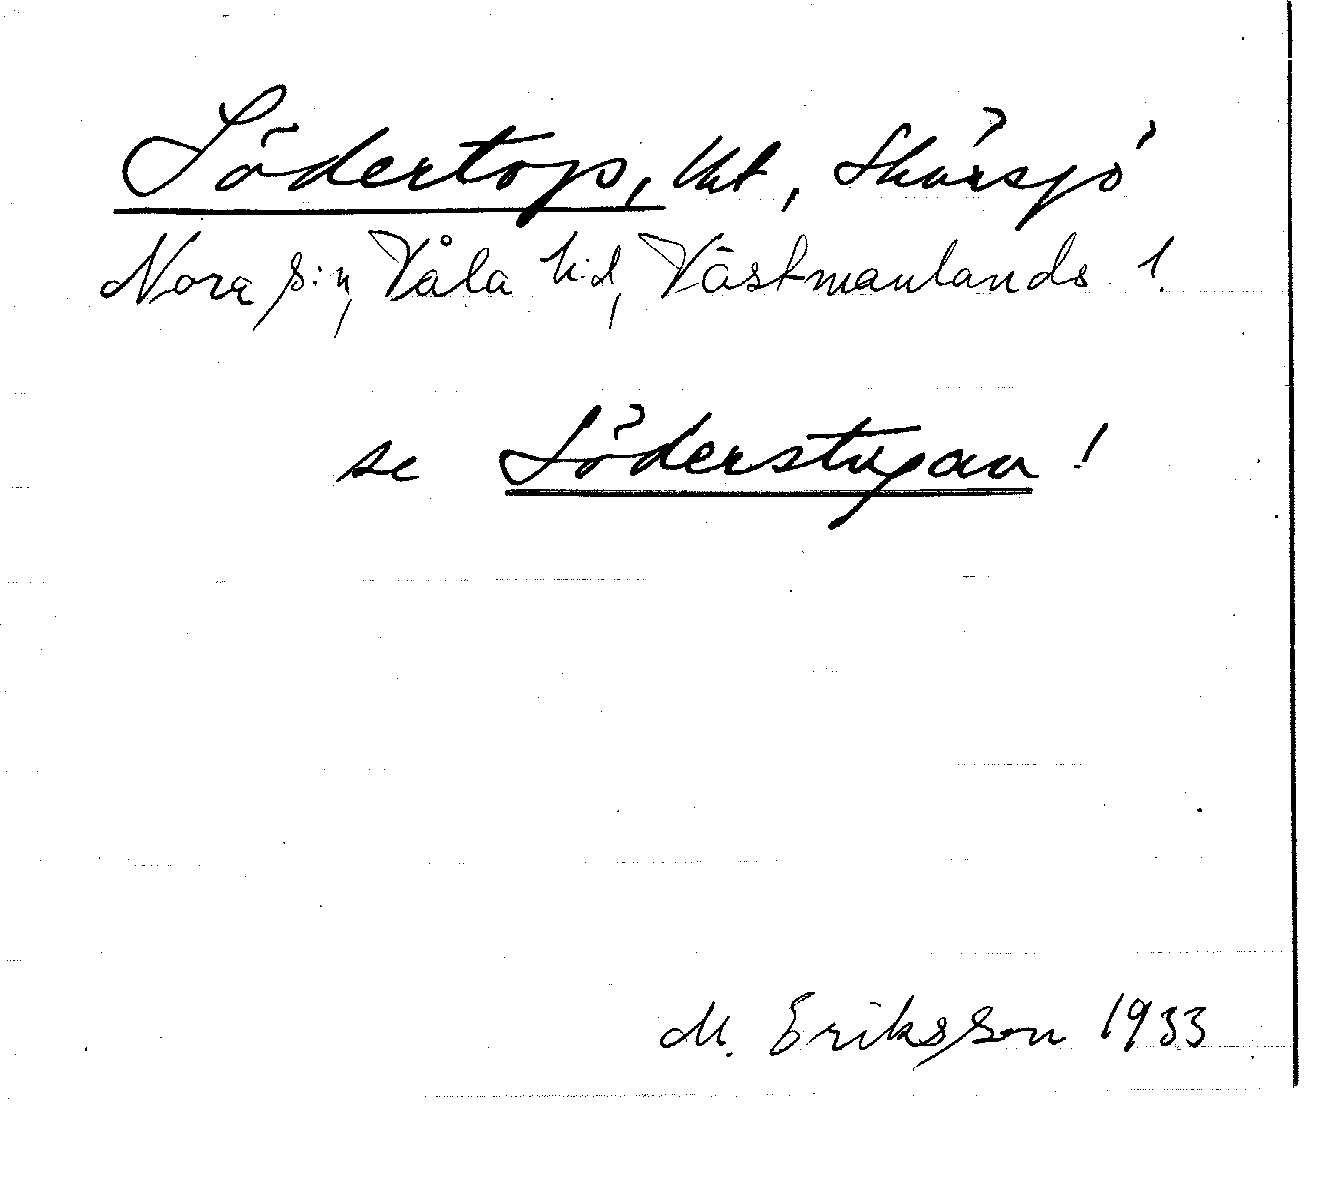 Södertorp, lht, Skärsjö
Nora s:n, Våla h:d, Västmanlands l.
se Söderstugan!
M. Eriksson 1933